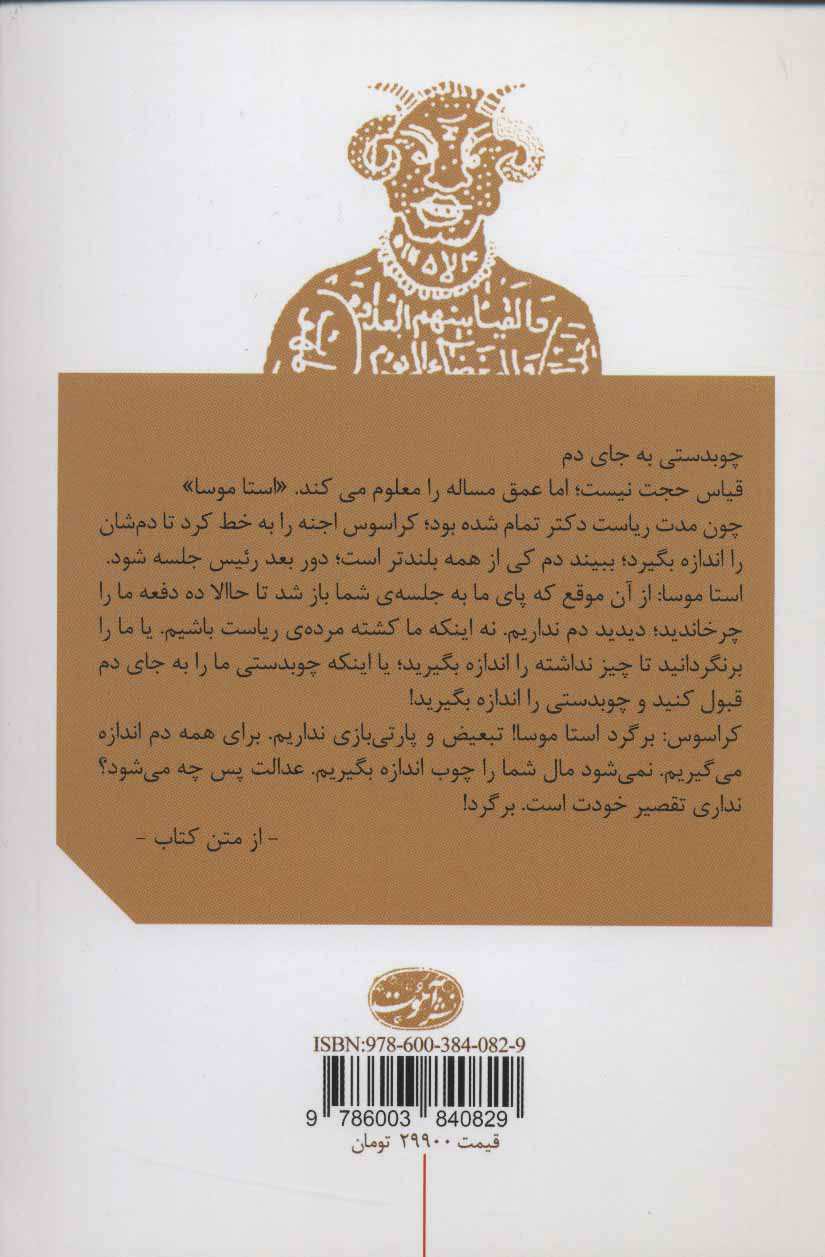 ۵۷۴
و القینا بینهم العداوة
چوبدستی به جای دم
قیاس حجت نیست؛ اما عمق مساله را معلوم می کند. «استا موسا»
چون مدت ریاست دکتر تمام شده بود؛ کراسوس اجنه را به خط کرد تا دم‌شان
را اندازه بگیرد؛ ببیند دم کی از همه بلندتر است؛ دور بعد رئیس جلسه شود.
استا موسا: از آن موقع که پای ما به جلسه‌ی شما باز شد تا حاالا ده دفعه ما را
چرخاندید؛ دیدید دم نداریم. نه اینکه ما کشته مرده‌ی ریاست باشیم. یا ما را
برنگردانید تا چیز نداشته را اندازه بگیرید؛ یا اینکه چوبدستی ما را به جای دم
قبول کنید و چوبدستی را اندازه بگیرید!
کراسوس: برگرد استا موسا! تبعیض و پارتی‌بازی نداریم. برای همه دم اندازه
می‌گیریم. نمی‌شود مال شما را چوب اندازه بگیریم. عدالت پس چه می‌شود؟
نداری تقصیر خودت است. برگرد!
- از متن کتاب -
نشر آموت
ISBN:978-600-384-082-9
9 786003 840829
قیمت ۲۹۹۰۰ تومان